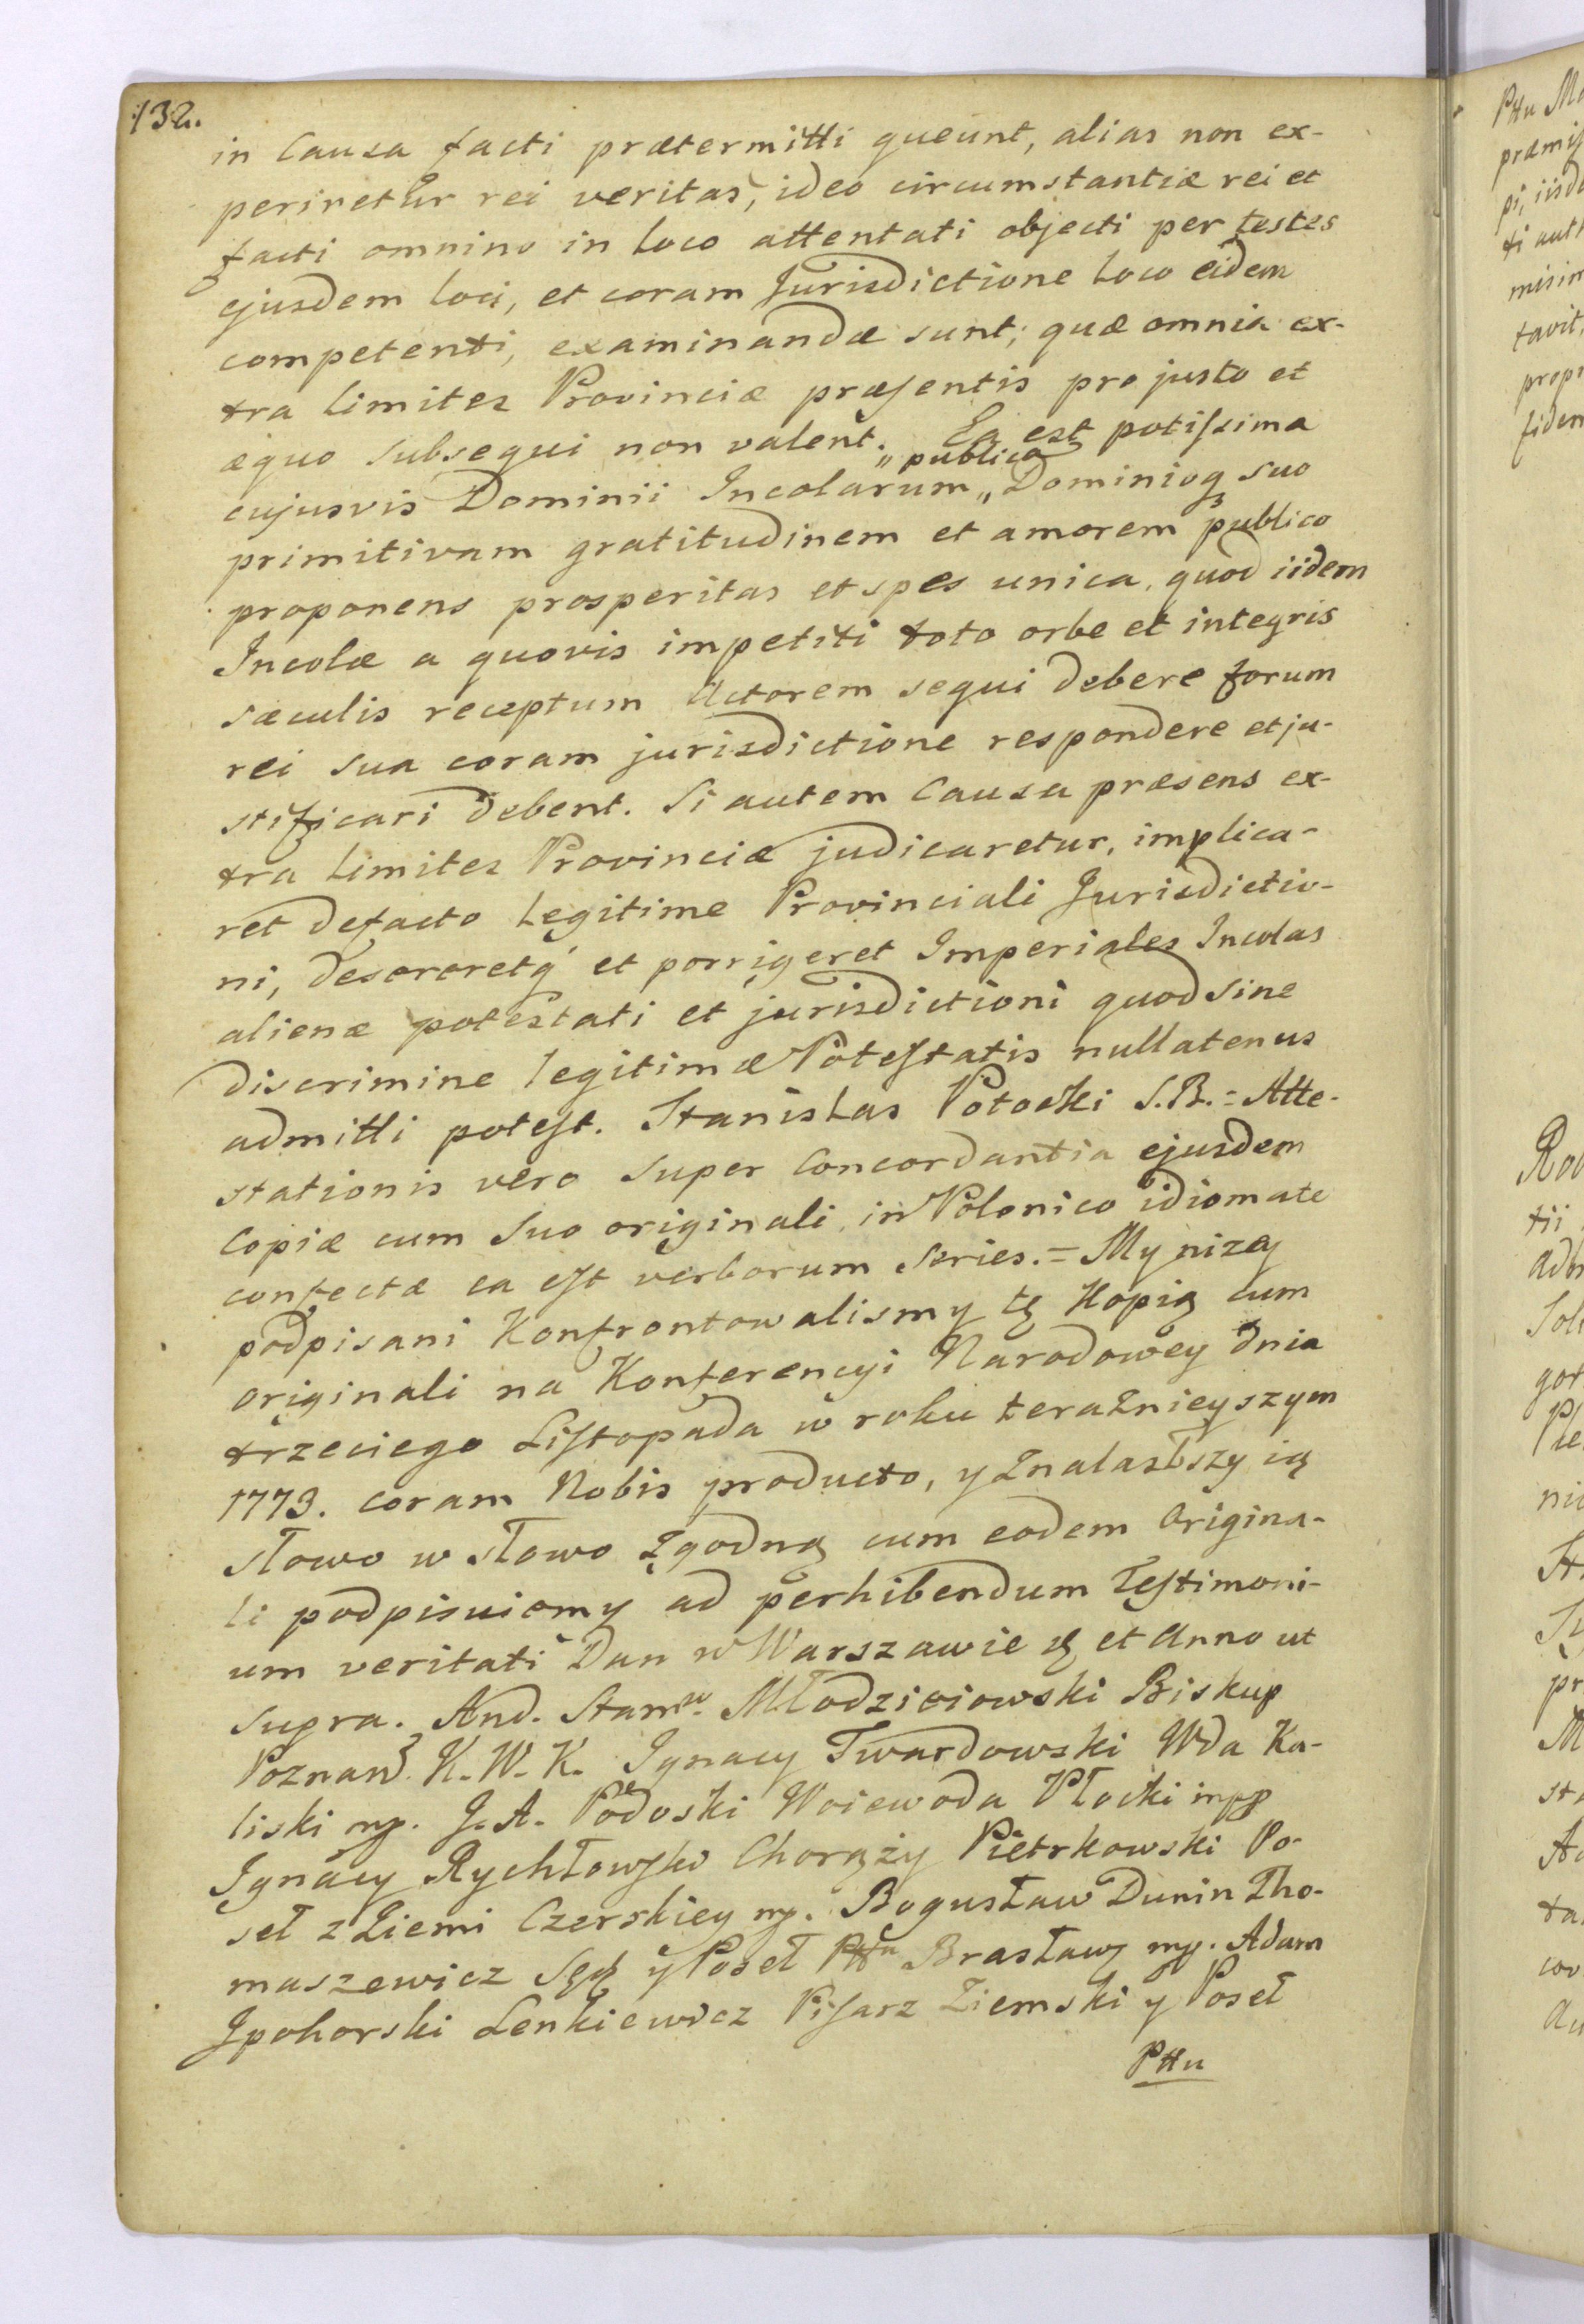 132.
in Causa facti prætermitti queunt, alias non ex-
periretur rei veritas, ideo circumstantiæ rei et
facti omnino in loco attentati objecti per testes
ejusdem loci, et coram Jurisdictione loco eidem
competenti, examinandæ sunt; quæ omnia ex-
tra limites Provinciæ præsentis pro justo et
æquo subsequi non valent. Ea est potissima
cujusvis Dominii Incolarum „publica„ Dominioq3 suo
primitivam gratitudinem et amorem publico
proponens prosperitas et spes unica, quod iidem
Incolæ a quovis impetiti toto orbe et integris
sæculis receptum Actorem sequi debere forum
rei sua coram jurisdictione respondere et ju-
stificari debent. Si autem Causa præsens ex-
tra limites Provinciæ judicaretur, implica-
ret defacto legitime Provinciali Jurisdictio-
ni, desereretq et porrigeret Imperiales Incolas
alienæ potestati et jurisdictioni quod sine
discrimine legitimæ Potestatis nullatenus
admitti potest. Stanislas Potocki S.R. = Atte-
stationis vero super Concordantia ejusdem
Copiæ cum Suo originali in Polonico idiomate
confectæ ea est verborum Series. = My nizey
podpisani Konfrontowalismy tę Kopię cum
originali na Konferencyi Narodowey dnia
trzeciego Listopada w roku teraznieyszym
1773. coram Nobis producto, y znalazłszy ią
słowo w słowo Zgodną cum eodem Origina-
li podpisuiemy ad perhibendum Testimoni-
um veritati Dan w Warszawie et Anno ut
supra. And. Stan. Młodzieiowski Biskup
Poznan. K. W. K. Ignacy Twardowski Wda Ka-
liski mp. J. A. Podoski Woiewoda Płocki mpp
Ignacy Rychłowski Chorąży Pietrkowski Po-
seł z Ziemi Czerskiey mp. Bogusław Dunin Tho-
maszewicz Sędź y Poseł Pttu Brasław mp. Adam
Jpohorski Lenkiewicz Pisarz Ziemski y Poseł
Pttu